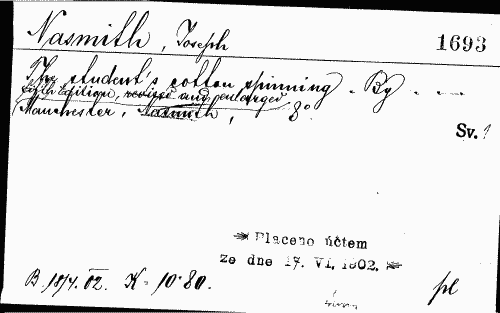 Nasmith, Joseph 1693
The student's cotton spinning. By . —
Edition, revised and enlarged
Manchester, Nasmith, 8°
Sv. 1
Placeno účtem
ze dne 17. VI. 1902.
B. 18/4. 02. K = 10·80. pl